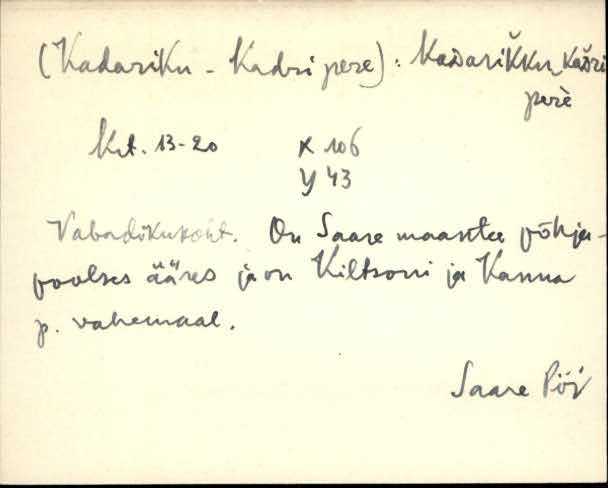 (Kadariku - Kadri pere): Kaδariǩku Kaδri
perè
Krt. 13-20 X 106
Y 43
Vabadikukoht. On Saare maantee põhja-
poolses ääres ja on Kiltsoni ja Kanna
p. vahemaal.
Saare Pöi